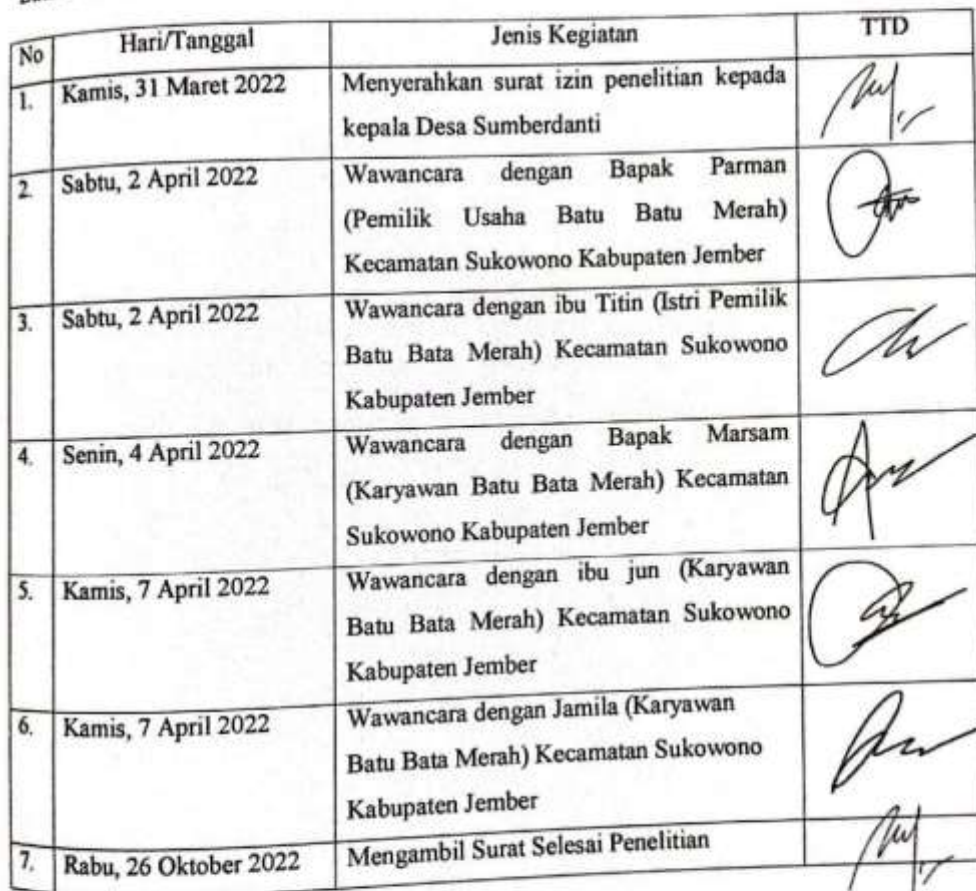 No Hari/Tanggal Jenis Kegiatan TTD
1. Kamis, 31 Maret 2022 Menyerahkan surat izin penelitian kepada
kepala Desa Sumberdanti
2. Sabtu, 2 April 2022 Wawancara dengan Bapak Parman
(Pemilik Usaha Batu Batu Merah)
Kecamatan Sukowono Kabupaten Jember
3. Sabtu, 2 April 2022 Wawancara dengan ibu Titin (Istri Pemilik
Batu Bata Merah) Kecamatan Sukowono
Kabupaten Jember
4. Senin, 4 April 2022 Wawancara dengan Bapak Marsam
(Karyawan Batu Bata Merah) Kecamatan
Sukowono Kabupaten Jember
5. Kamis, 7 April 2022 Wawancara dengan ibu jun (Karyawan
Batu Bata Merah) Kecamatan Sukowono
Kabupaten Jember
6. Kamis, 7 April 2022 Wawancara dengan Jamila (Karyawan
Batu Bata Merah) Kecamatan Sukowono
Kabupaten Jember
7. Rabu, 26 Oktober 2022 Mengambil Surat Selesai Penelitian